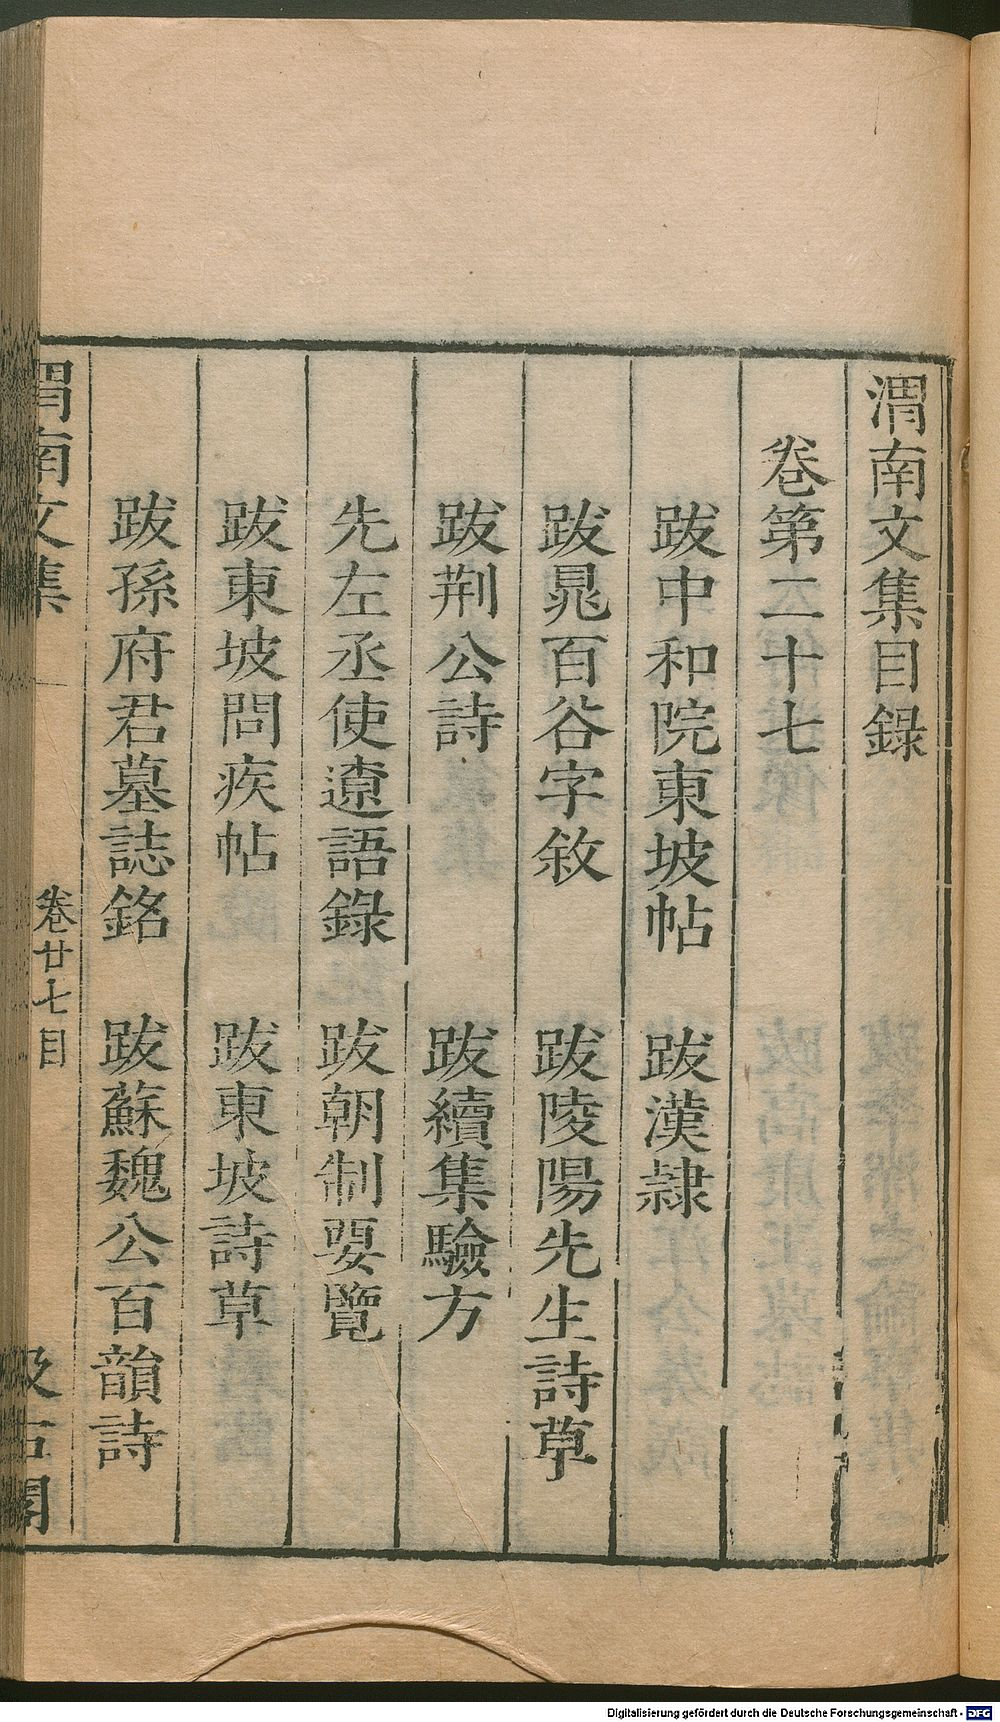 渭南文集目録
卷第二十七
跋中和院東坡帖　跋漢隷
跋晁百谷字敘　跋陵陽先生詩草
跋荆公詩　跋續集驗方
先左丞使遼語録　跋朝制要覽
跋東坡問疾帖　跋東坡詩草
跋孫府君墓誌銘　跋蘇魏公百韻詩
渭南文集　卷廿七目　汲古閣
Digitalisierung gefördert durch die Deutsche Forschungsgemeinschaft - DFG